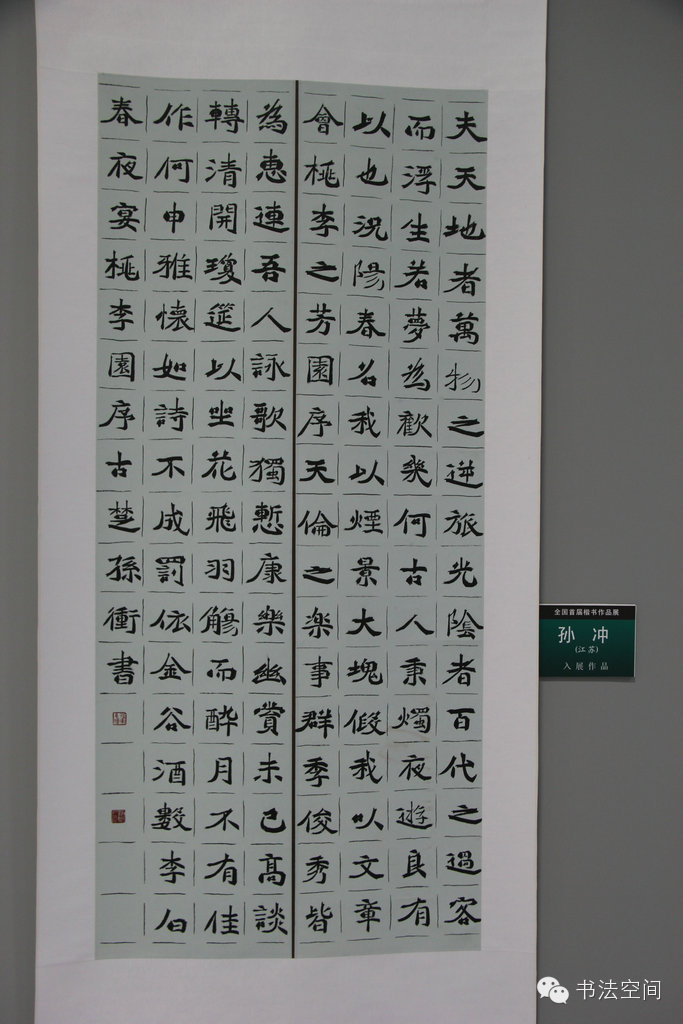 夫天地者萬物之逆旅光陰者百代之過客
而浮生若夢為歡幾何古人秉燭夜遊良有
以也況陽春召我以煙景大塊假我以文章
會桃李之芳園序天倫之楽事群季俊秀皆
為惠連吾人詠歌獨慙康樂幽賞未已高談
轉清開瓊筵以坐花飛羽觴而醉月不有佳
作何申雅懷如詩不成罰依金谷酒數李白
春夜宴桃李園序古楚孫衝書
全国首届楷书作品展
孙 冲
(江苏)
入展作品
书法空间